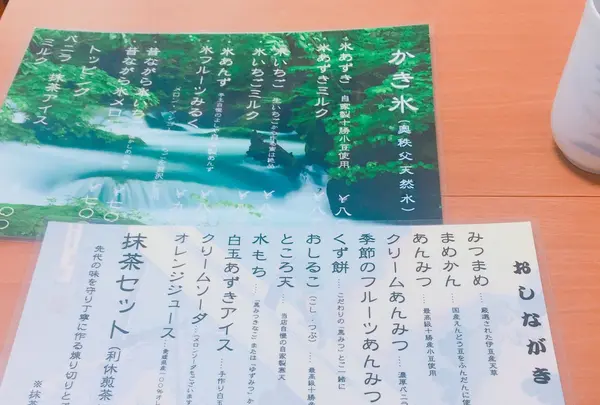 かき氷（奥秩父天然水）
氷あずき 自家製十勝小豆使用 ￥八
氷あずきミルク
氷いちご 生いちご
氷いちごミルク
氷あんず
氷フルーツみるく
昔ながら
昔ながら氷メロン
トッピング
バニラ
ミルク 抹茶アイス
おしながき
みつまめ … 厳選された伊豆産天草
まめかん … 国産えんどう豆をふんだんに使
あんみつ … 最高級十勝産小豆使用
クリームあんみつ … 濃厚バニ
季節のフルーツあんみつ
くず餅 … こだわりの「黒みつ」とご一緒に
おしるこ（こし・つぶ） … 最高級十勝
ところ天 … 当店自慢の自家製寒天
水もち … 「黒みつきなこ」または「ゆずみつ」か
白玉あずきアイス … 手作り白玉
クリームソーダ
オレンジジュース … 愛媛県産100％オレ
抹茶セット（利休煎茶
先代の味を守り丁寧に作る練り切りと
※抹茶